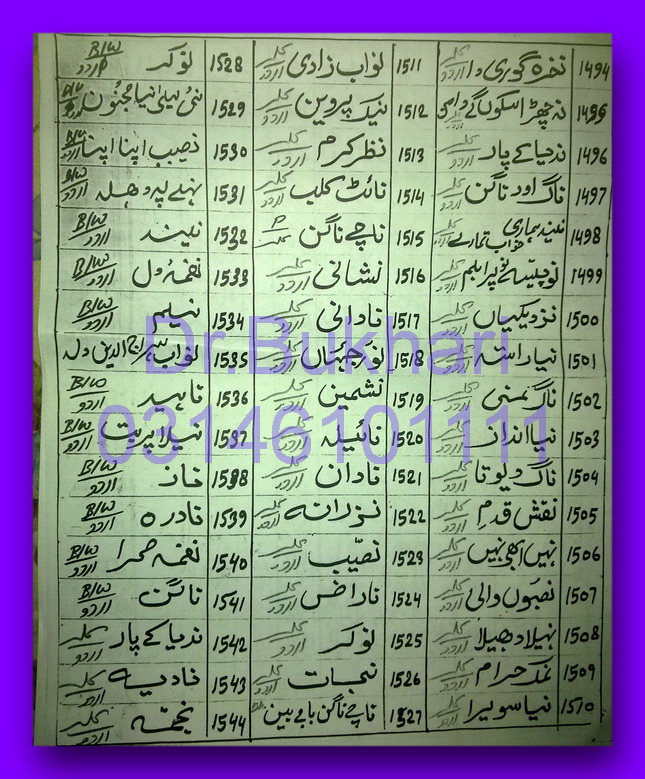 1494 نخرہ گوری دا کلر اردو
1495 نہ چھڑا سکوں گے دامن
1496 ندیا کے پار کلر اردو
1497 ناگ اور ناگن کلر اردو
1498 نیند ہماری خواب تمہارے
1499 نو پیسہ نو پرابلم کلر اردو
1500 نزدیکیاں کلر اردو
1501 نیا راستہ کلر اردو
1502 ناگ منی کلر اردو
1503 نیا انداز کلر اردو
1504 ناگ دیوتا کلر اردو
1505 نقش قدم کلر اردو
1506 نہیں ابھی نہیں کلر اردو
1507 نصیبوں والی کلر اردو
1508 نہیلا دھیلا کلر اردو
1509 نمک حرام کلر اردو
1510 نیا سویرا کلر اردو
1511 نواب زادی کلر اردو
1512 نیک پروین کلر اردو
1513 نظر کرم کلر اردو
1514 نائٹ کلب کلر اردو
1515 ناچے ناگن کلر
1516 نشانی کلر اردو
1517 نادانی کلر اردو
1518 نور جہاں کلر اردو
1519 نشیمن کلر اردو
1520 نائیلہ کلر اردو
1521 نادان کلر اردو
1522 نذرانہ کلر اردو
1523 نصیب کلر اردو
1524 ناراض کلر اردو
1525 نوکر کلر اردو
1526 نجات کلر اردو
1527 ناچے ناگن باجے بین
1528 نوکر B/W اردو
1529 نئی لیلی نیا مجنون B/W اردو
1530 نصیب اپنا اپنا B/W اردو
1531 نہلے پہ دھلہ B/W اردو
1532 نیند B/W اردو
1533 نغمہ دل B/W اردو
1534 نیلم B/W اردو
1535 نواب سراج الدین دولہ
1536 ناہید B/W اردو
1537 نیلا پربت B/W اردو
1538 ناز B/W اردو
1539 نادرہ B/W اردو
1540 نغمہ صحرا B/W اردو
1541 ناگن B/W اردو
1542 ندیا کے پار کلر اردو
1543 نادیہ کلر اردو
1544 نجمہ کلر اردو
Dr.Bukhari
03146101111